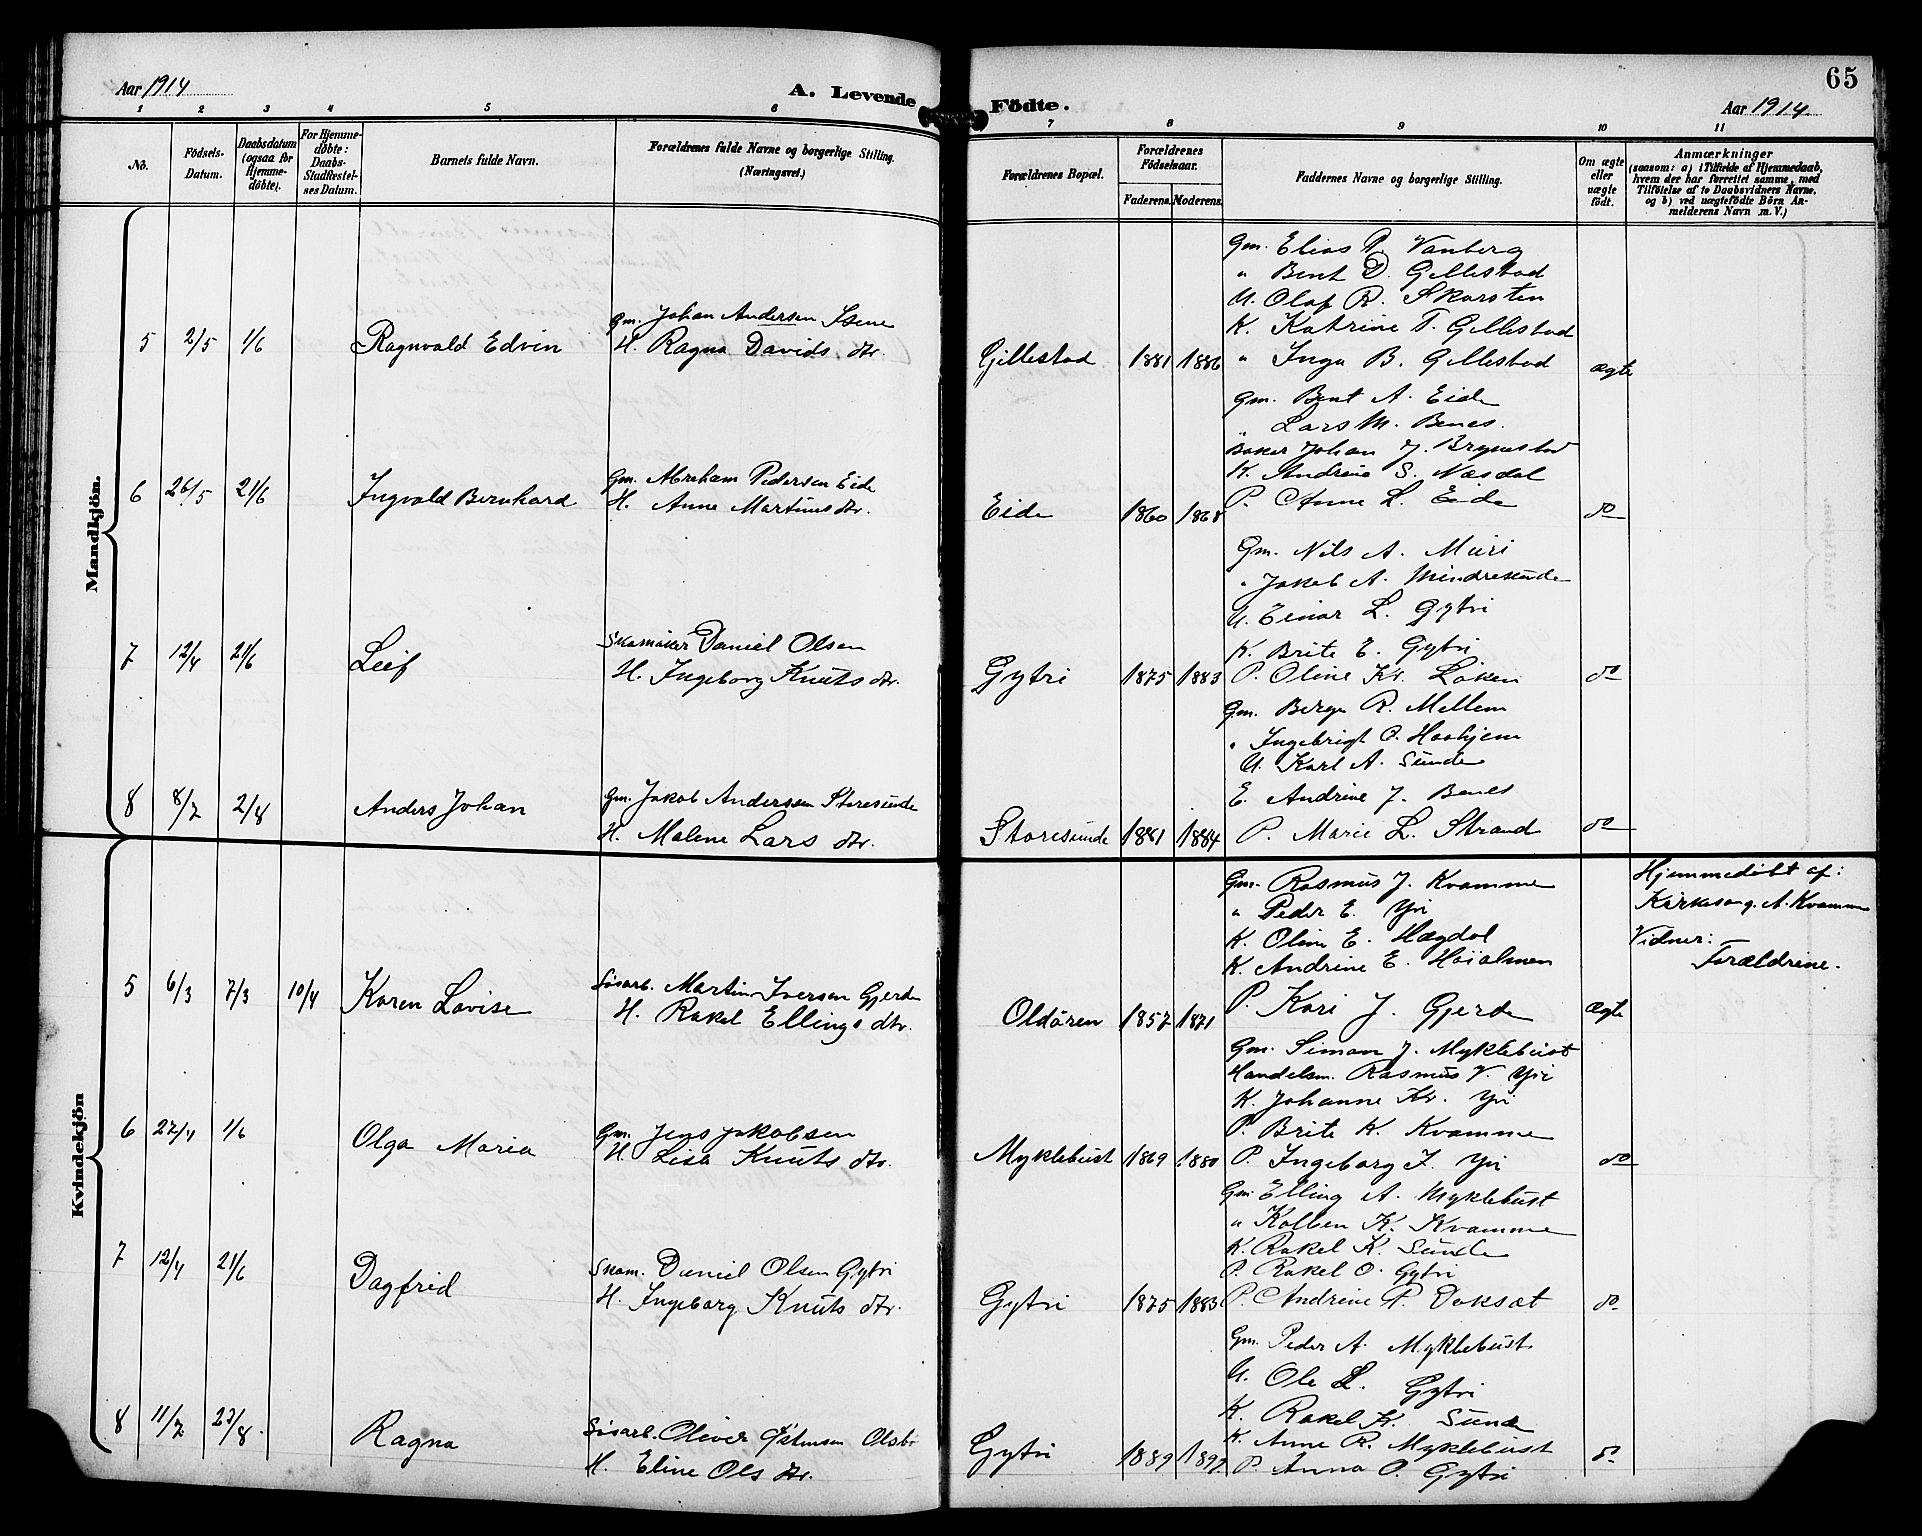 65
Aar 1914
A. Levende Födte.
Aar 1914.
1 2 3 4 5 6 7 8 9 10 11
No.
Födsels-Datum.
Daabsdatum (ogsaa for Hjemmedöbte).
For Hjemmedöbte: Daabs-Stadfæstelses Datum.
Barnets fulde Navn.
Forældrenes fulde Navne og borgerlige Stilling. (Næringsvei.)
Forældrenes Bopæl.
Forældrenes Födselsaar.
Faderens. Moderens.
Faddernes Navne og borgerlige Stilling.
Om ægte eller uægte födt.
Anmærkninger
(saasom: a) i Tilfælde af Hjemmedaab, hvem der har forrettet samme, med Tilföielse af to Daabsvidners Navne, og b) ved uægtefödte Börn Anmelderens Navn m. V.)
Mandkjön.
5 2/5 1/6 Ragnvald Edvin
Gm. Johan Andersen Isene
H. Ragna Davids dtr.
Gillestad 1881 1886
Gm. Elias P. Vanberg
" Bent D. Gillestad
U. Olaf R. Skarsten
K. Katrine T. Gillestad
" Inga B. Gillestad
ægte
6 26/5 21/6 Ingvald Bernhard
Gm. Abraham Pedersen Eide
H. Anne Martinus dtr.
Eide 1860 1868
Gm. Bent A. Eide
" Lars M. Benes.
Baker Johan J. Brynestad
K. Andrine S. Næsdal
P. Anne L. Eide
do
7 12/4 21/6 Leif
Skomaker Daniel Olsen
H. Ingeborg Knuts dtr.
Gytri 1875 1883
Gm. Nils A. Muri
" Jakob A. Mindresunde
U. Einar L. Gytri
K. Brite E. Gytri
P. Oline Kr. Löken
do
8 8/7 2/8 Anders Johan
Gm. Jakob Anderssen Storesunde
H. Malene Lars dtr.
Storesunde 1881 1884
Gm. Berge R. Mellem
" Ingebrigt O. Haahjem
U. Karl A. Sunde
E. Andrine J. Benes
P. Marie L. Strand
do
Kvindekjön
5 6/3 7/3 10/4 Karen Lovise
Gm. Rasmus J. Kvamme
" Peder E. Yri
K. Oline E. Hægdal
K. Andrine E. Höialmen
P. Kari J. Gjerde
Sjöarb. Martin Iversen Gjerde
H. Rakel Ellings dtr.
Oldören 1857 1871
ægte
Hjemmedöbt af:
Kirkesang. A. Kvamme
Vidner:
Forældrene.
6 27/4 1/6 Olga Maria
Gm. Jens Jakobsen
H. Lisa Knuts dtr.
Myklebust 1869 1880
Gm. Simon J. Myklebust
Handelsm. Rasmus V. Yri
K. Johanne Kr. Yri
P. Brite K. Kvamme
P. Ingeborg J. Yri
do
7 12/4 21/6 Dagfrid
Skom. Daniel Olsen Gytri
H. Ingeborg Knuts dtr.
Gytri 1875 1883
Gm. Elling A. Myklebust
" Kolben K. Kvamme
K. Rakel K. Sunde
P. Rakel O. Gytri
P. Andrine P. Doksæt
do
8 11/7 23/8. Ragna
Sjöarb. Oliver
H. Eline Ols dtr.
Gytri 1889 1892
Gm. Peder A. Myklebust
U. Ole L. Gytri
K. Rakel K. Sunde
K. Anne R. Myklebust
P. Anna O. Gytri
do